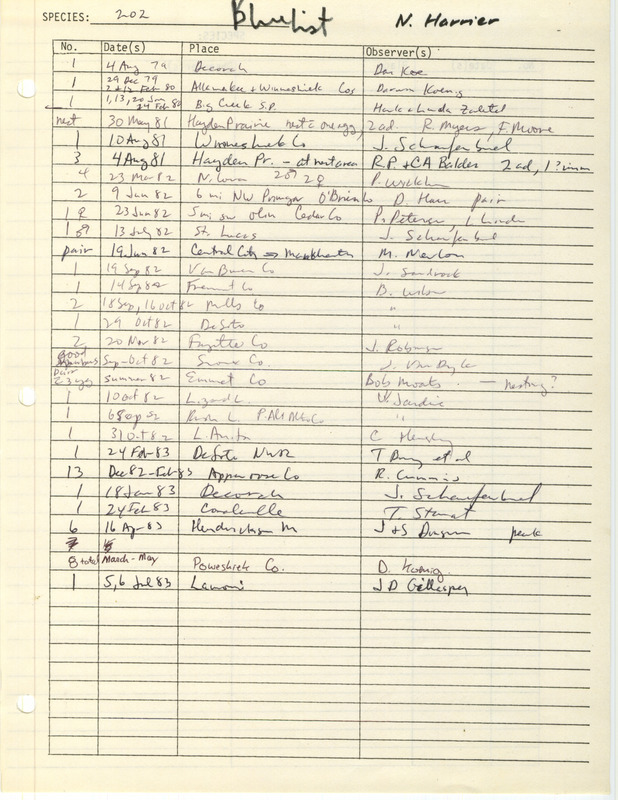 SPECIES: 202 Bluelist N. Harrier
No. Date(s) Place Observer(s)
1 4 Aug 79 Decorah Dan Koe
1 29 Dec 79 2 + 12 Feb 80 Allamakee + Winneshiek Cos Darwin Koenig
1 1, 13, 20 Jan 24 Feb 80 Big Creek S.P. Hank + Linda Zaletel
nest 30 May 81 Hayden Prairie nest c one egg, 2 ad. R. Myers, F. Moore
1 10 Aug 81 Winneshiek Co J. Schaufenbuel
3 4 Aug 81 Hayden Pr. - at nest area RP + CA Balder 2 ad, 1 ? imm
4 23 Mar 82 N. Iowa 2♂ 2♀
2 9 Jun 82 6 mi NW Primghar O'Brien Co D. Harr pair
1 ♀ 23 Jan 82 5 mi sw Olin Cedar Co P. Petersen,
1 13 July 82 St. Lucas J. Schaufenbuel
pair 19 Jun 82 Central City M. Newlon
1 19 Sep 82 Van Buren Co J. Sandrock
1 14 Sep 82 Fremont Co B. Wilson
2 18 Sep, 16 Oct 82 Mills Co "
1 29 Oct 82 DeSoto "
2 20 Nov 82 Fayette Co J. Robinson
good numbers Sep-Oct 82 Sioux Co. J. Van Dyke
pair summer 82 Emmet Co Bob Moats - nesting?
1 10 Oct 82 Lizard L. W. Jardine
1 6 Sep 82 L. "
1 31 Oct 82 L. Anita C
1 24 Feb 83 DeSoto NWR T Bray et al
13 Dec 82 - Feb 83 Appanoose Co R. Cummins
1 18 Jan 83 Decorah J. Schaufenbuel
1 24 Feb 83 Coralville T. Stewart
6 16 Apr 83 Hendrickson M J + S Dinsmore peak
8 total March - May Poweshiek Co. D. Koenig.
1 5, 6 Jul 83 Lamoni JD Gillaspey